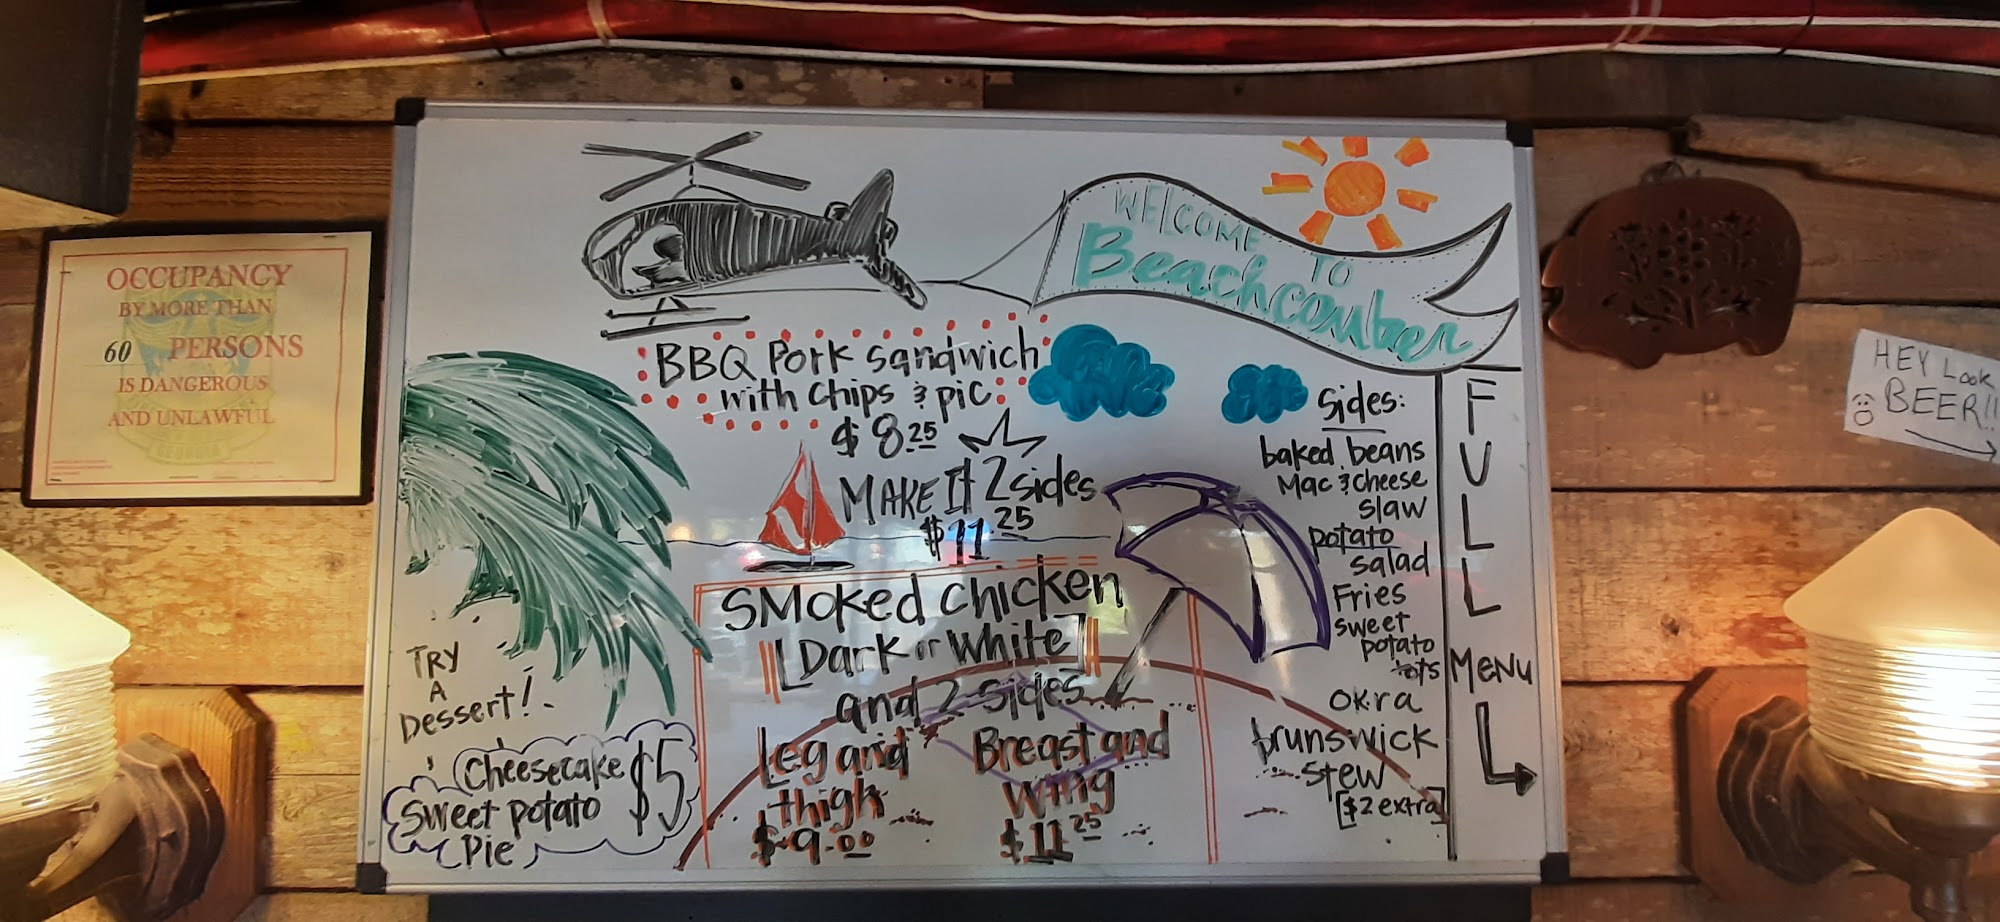 OCCUPANCY
BY MORE THAN
60 PERSONS
IS DANGEROUS
AND UNLAWFUL
GEORGIA
WELCOME
TO
Beachcomber
BBQ Pork sandwich
with chips & pic
$8.25
MAKE It 2 sides
$11.25
SMoked chicken
[Dark or White]
and 2 sides
Leg and
thigh
$9.00
Breast and
wing
$11.25
TRY
A
Dessert!
Cheesecake
sweet potato
Pie
$5
sides:
baked beans
Mac & cheese
slaw
potato
salad
Fries
sweet
potato
tots
okra
brunswick
stew
[$2 extra]
FULL
MENU
HEY Look
BEER!!